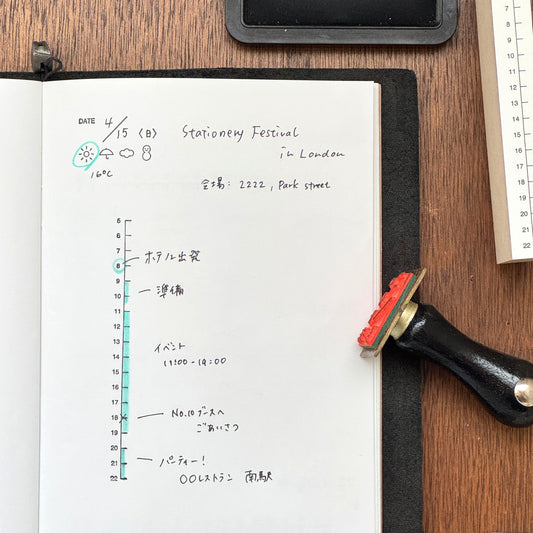 DATE 4/15 (日) Stationery Festival
in London
16°C
会場: 2222, Park street
5
6
7
8 ホテル出発
9
10 準備
11
12
13
14 イベント
11:00 - 19:00
15
16
17
18 No.10 ブースへ
19 ごあいさつ
20
21 パーティー!
22 〇〇レストラン 南駅
7
8
9
10
11
12
13
14
15
16
17
18
19
20
21
22